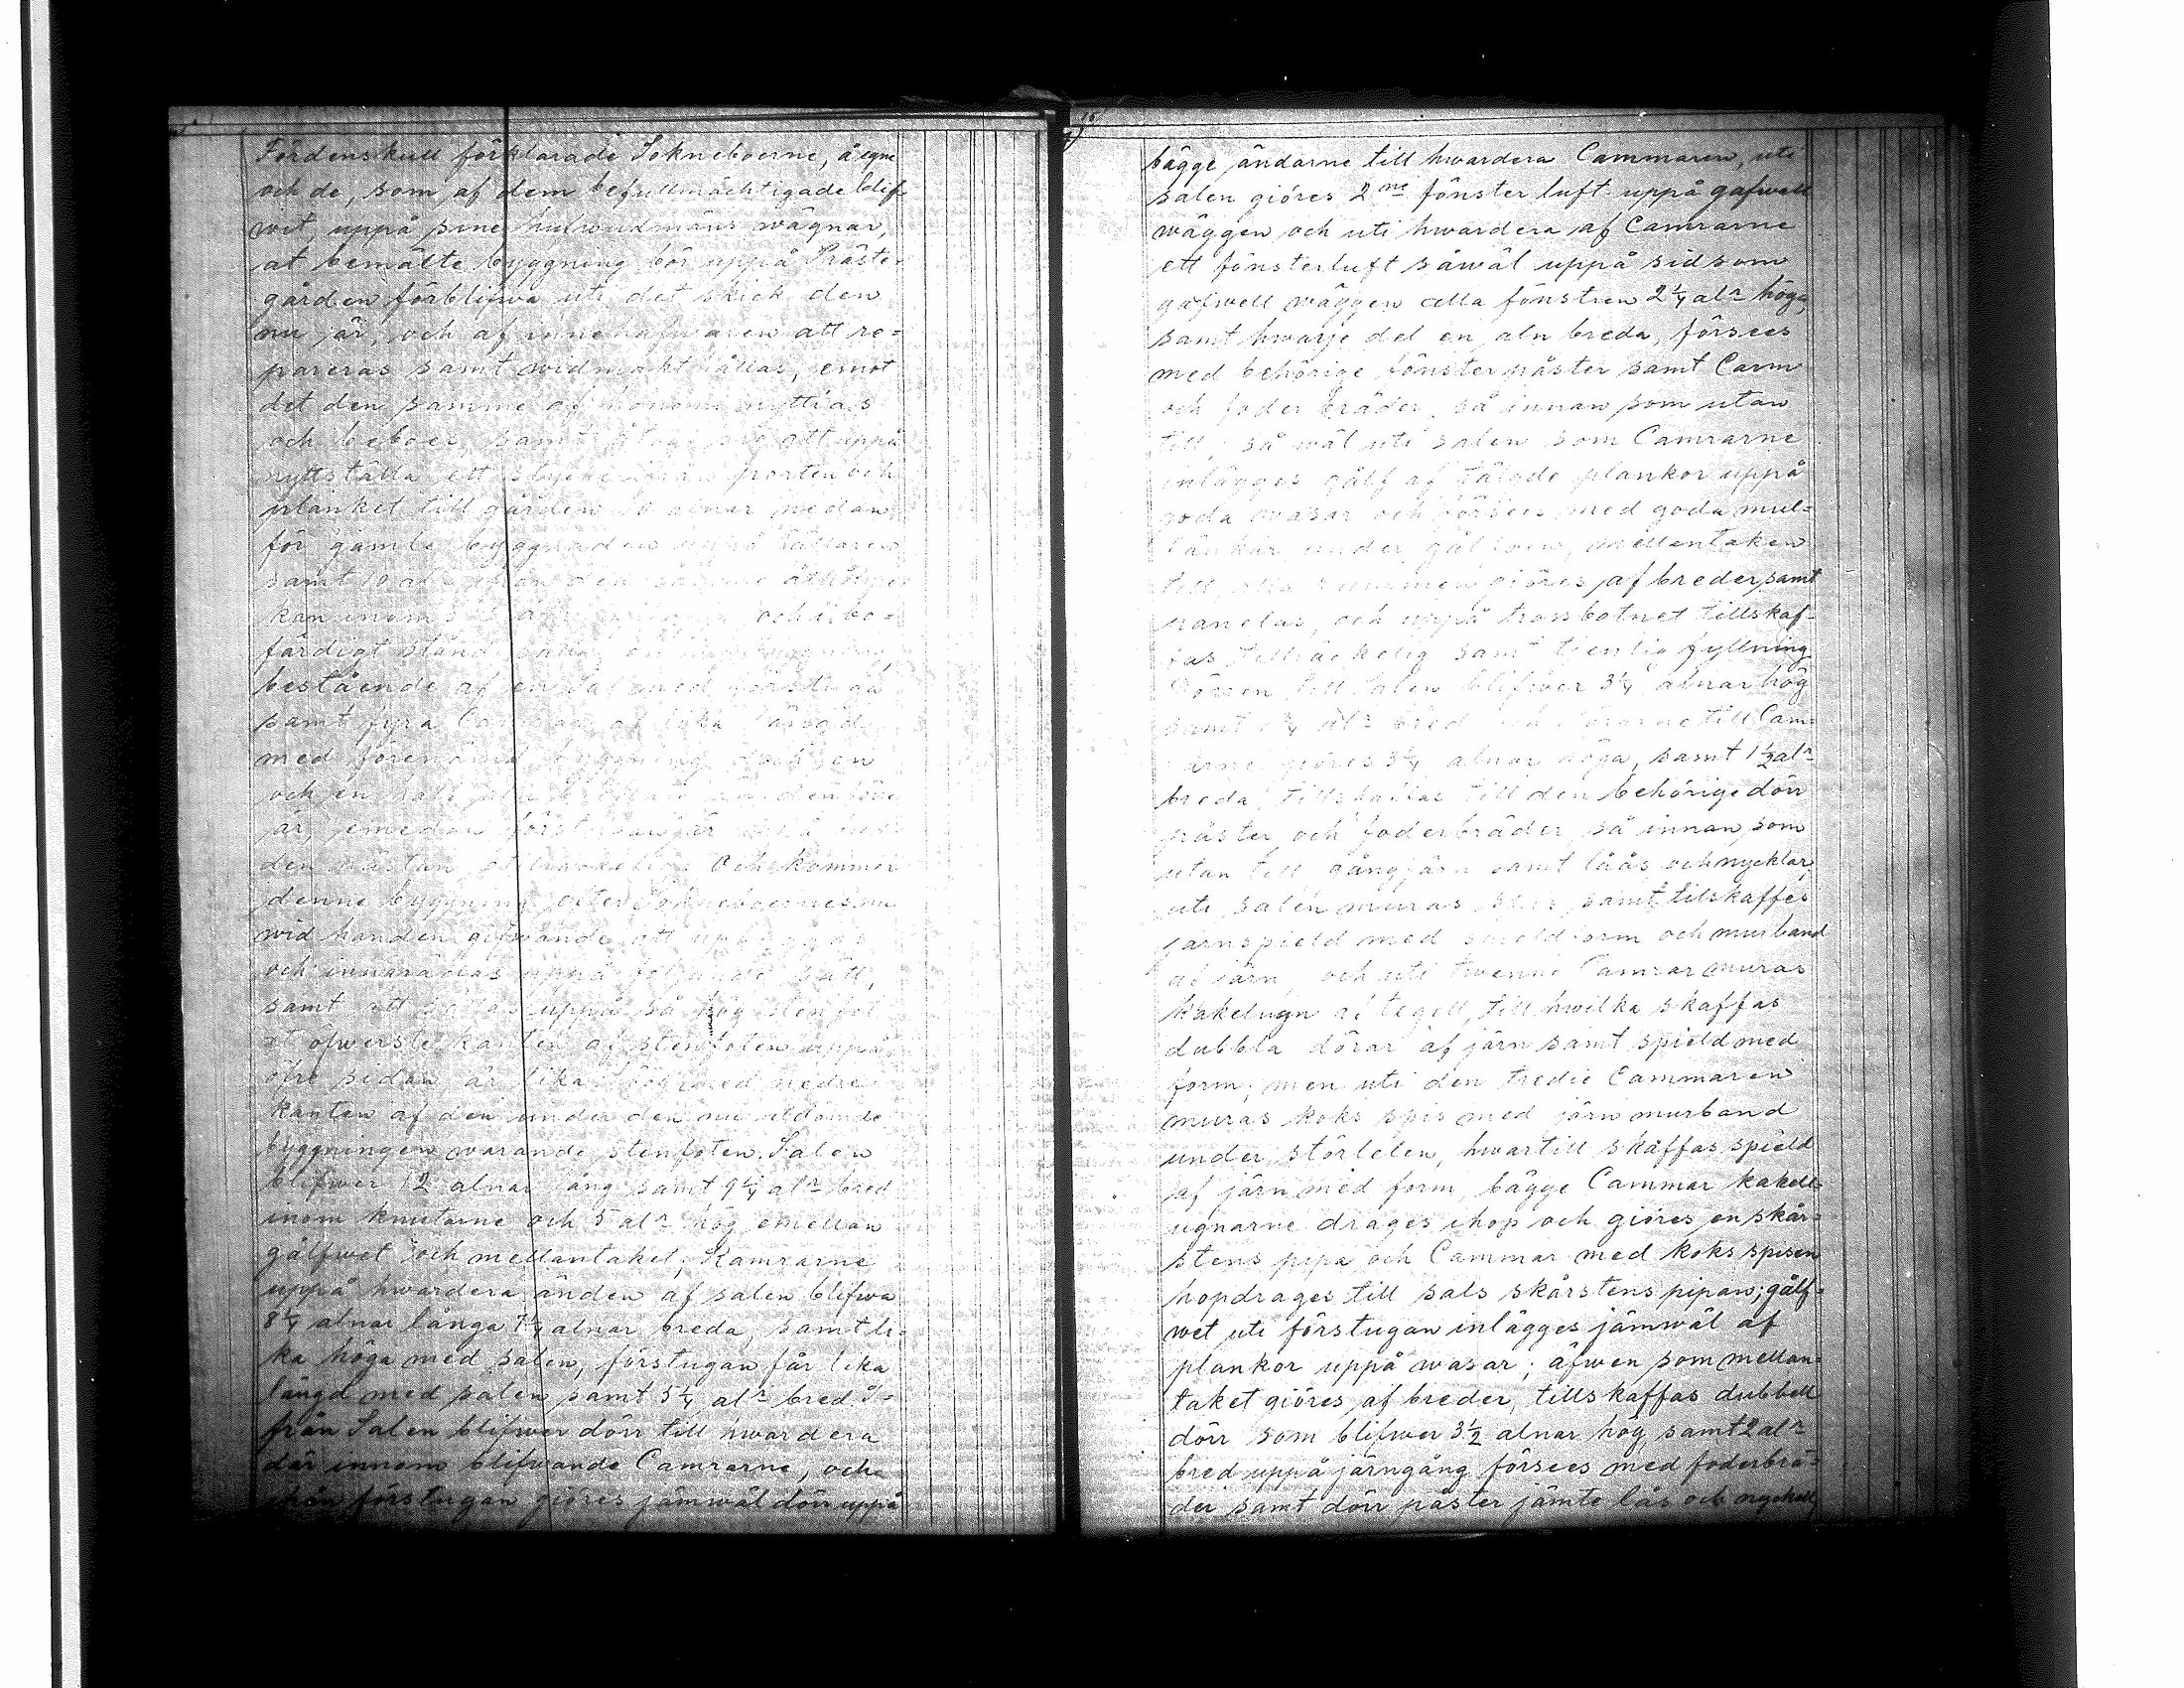 Fördenskull förklarade Sokneboerne, ägne
och de, som af dem befullmächtigade blif-
wit, uppå sine hufwudmäns wägnar,
at bemälte byggning bör uppå Präste-
gården förblifwa uti det skick den
nu är, och af innehafwaren att re=
pareras samt widmakt hållas, emot
det den samme af honom nyttias
och beboes, samt åtogo sig att uppå
nyttställa ett stycke ifrån porten och
planket till gården alnar nedan
för gamla byggnaden uppå källaren
samt 10 al den
kan inom och i bo=
färdigt stånd sättia en byggning,
bestående af en Sal med förstuga
samt fyra Camrar af lika längd
med förenämd byggning och en
och en half
är, emedan förstugan är
den nästan Och kommer
denne byggning efter Sokneboernes nu
wid handen gifwande att upbyggas
och innrädas uppå följande sätt,
samt att sättas uppå så hög stenfot
at öfwerste kanten af stenfoten uppå
öfre sidan är lika hög med nedre
kanten af den under den nu utdömde
byggningen warande stenfoten. Salen
blifwer 12 alnar lång samt 9 1/4 alr bred
inom knutarne och 5 alr hög emellan
gålfwet och mellantaket, Kamrarne
uppå hwardera änden af salen blifwa
8 1/4 alnar långa 7 1/4 alnar breda, samt li-
ka höga med salen, förstugan får lika
längd med salen samt 5 1/4 alr bred. I-
från Salen blifwer dörr till hwardera
där innom blifwande Camrarne, och
ifrån förstugan giöres jämwäl dörr uppå
bägge ändarne till hwardera Cammaren, uti
salen giöres 2ne fönster luft uppå gafwell
wäggen och uti hwardera af Camrarne
ett fönsterluft såwäl uppå sid som
gafwell wäggen alla fönstren 2 1/4 alr höga,
samt hwarje del en aln breda, försees
med behörige fönster påster samt Carm
och foder bräder, så innan som utan
till, så wäl uti salen som Camrarne
inlägges gålf af tälgde plankor uppå
goda wasar och försees med goda mul=
bänkar under gålfwen, mellantaken
till alla rummen giöres af breder samt
panelas, och uppå trossbotnet tillskaf-
fas tillräckelig samt tjenlig fyllning
Dörren till Salen blifwer 3 1/4 alnar hög
samt alr bred och dörarne till Cam-
rarne giöres 3 1/4 alnar höga, samt 1 1/2 alr
breda, tillskaffas till den behörige dörr
påster och foderbräder så innan, som
utan till gångjärn samt låås och nycklar,
uti salen muras spis, samt tilskaffes
jarnspield med spield form och murband
af järn, och uti twenne Camrar muras
kakelugn af tegell, till hwilka skaffas
dubbla dörar af järn samt spield med
form; men uti den tredie Cammaren
muras koks spis med järn murband
under störleken, hwartill skaffas spield
af järn med form, bägge Cammar kakell-
ugnarne drages ihop och giöres en skår=
stens pipa och Cammar med koks spisen
hopdrages till sals skårstens pipan; gålf-
wet uti förstugan inlägges jämwäl af
plankor uppå wasar; äfwen som mellan-
taket giöres af breder, tillskaffas dubbell
dörr som blifwer 3 1/2 alnar hög samt 2 alr
bred uppå järngång försees med foderbrä-
der samt dörr påster jämte lås och nyckell